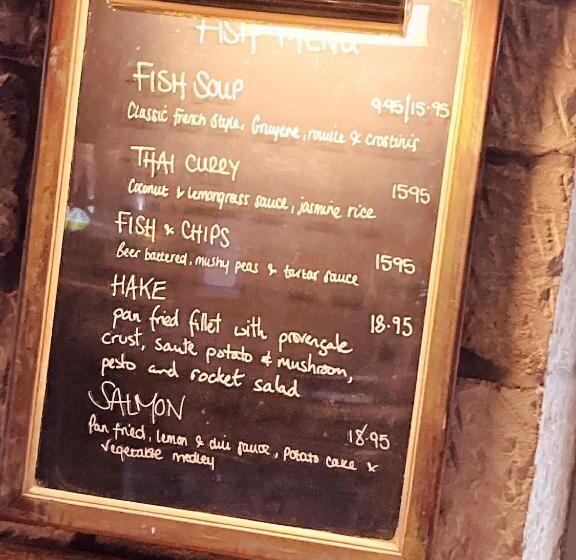 FISH MENU
FISH SOUP
9.95/15.95
Classic French Style, Gruyere, rouille & crostinis
THAI CURRY
1595
Coconut & lemongrass sauce, jasmine rice
FISH & CHIPS
1595
Beer battered, mushy peas & tartar sauce
HAKE
pan fried fillet with provençale 18.95
crust, saute potato & mushroom,
pesto and rocket salad
SALMON
18.95
Pan fried, lemon & dill sauce, potato cake &
vegetable medley